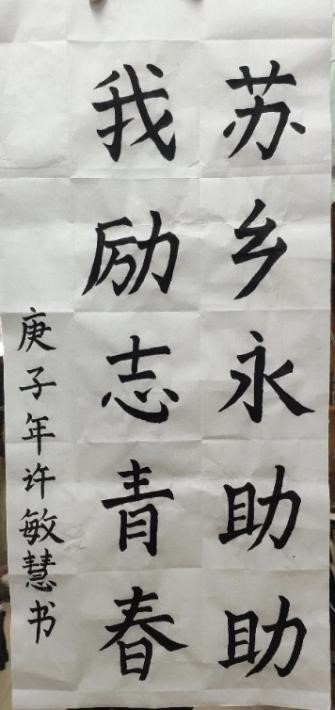 苏乡永助助
我励志青春
庚子年许敏慧书